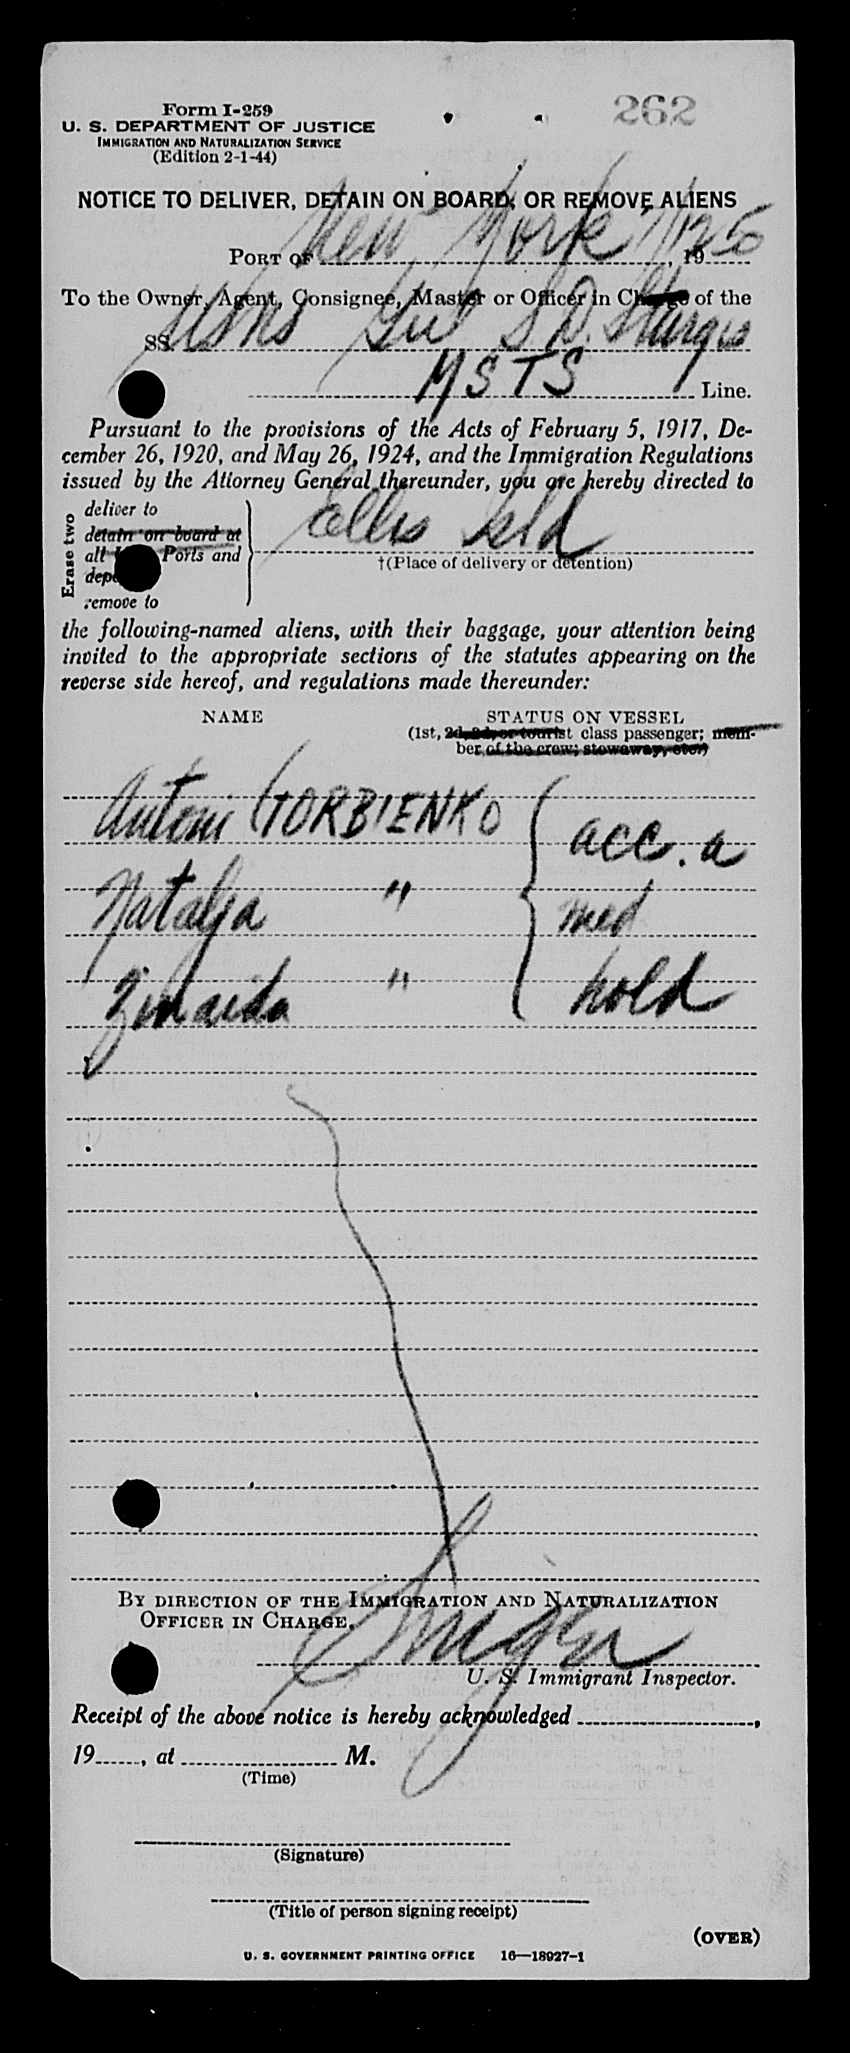 262
Form I-259
U. S. DEPARTMENT OF JUSTICE
IMMIGRATION AND NATURALIZATION SERVICE
(Edition 2-1-44)
NOTICE TO DELIVER, DETAIN ON BOARD, OR REMOVE ALIENS
PORT OF New York, 19
To the Owner, Agent, Consignee, Master or Officer in Charge of the
SS USNS Gen S D. Sturgis
MSTS Line.
Pursuant to the provisions of the Acts of February 5, 1917, De-
cember 26, 1920, and May 26, 1924, and the Immigration Regulations
issued by the Attorney General thereunder, you are hereby directed to
Erase two
deliver to
detain on board at
all Ports and
remove to
Ellis Isld
†(Place of delivery or detention)
the following-named aliens, with their baggage, your attention being
invited to the appropriate sections of the statutes appearing on the
reverse side hereof, and regulations made thereunder:
NAME STATUS ON VESSEL
(1st, 2d, 3d, or tourist class passenger; mem-
ber of the crew; stowaway, etc.)
Antoni GORBIENKO acc. a
Natalja " med
Zinaida " hold
BY DIRECTION OF THE IMMIGRATION AND NATURALIZATION
OFFICER IN CHARGE.
U. S. Immigrant Inspector.
Receipt of the above notice is hereby acknowledged ,
19 , at M.
(Time)
(Signature)
(Title of person signing receipt)
(OVER)
U. S. GOVERNMENT PRINTING OFFICE 16—18927-1